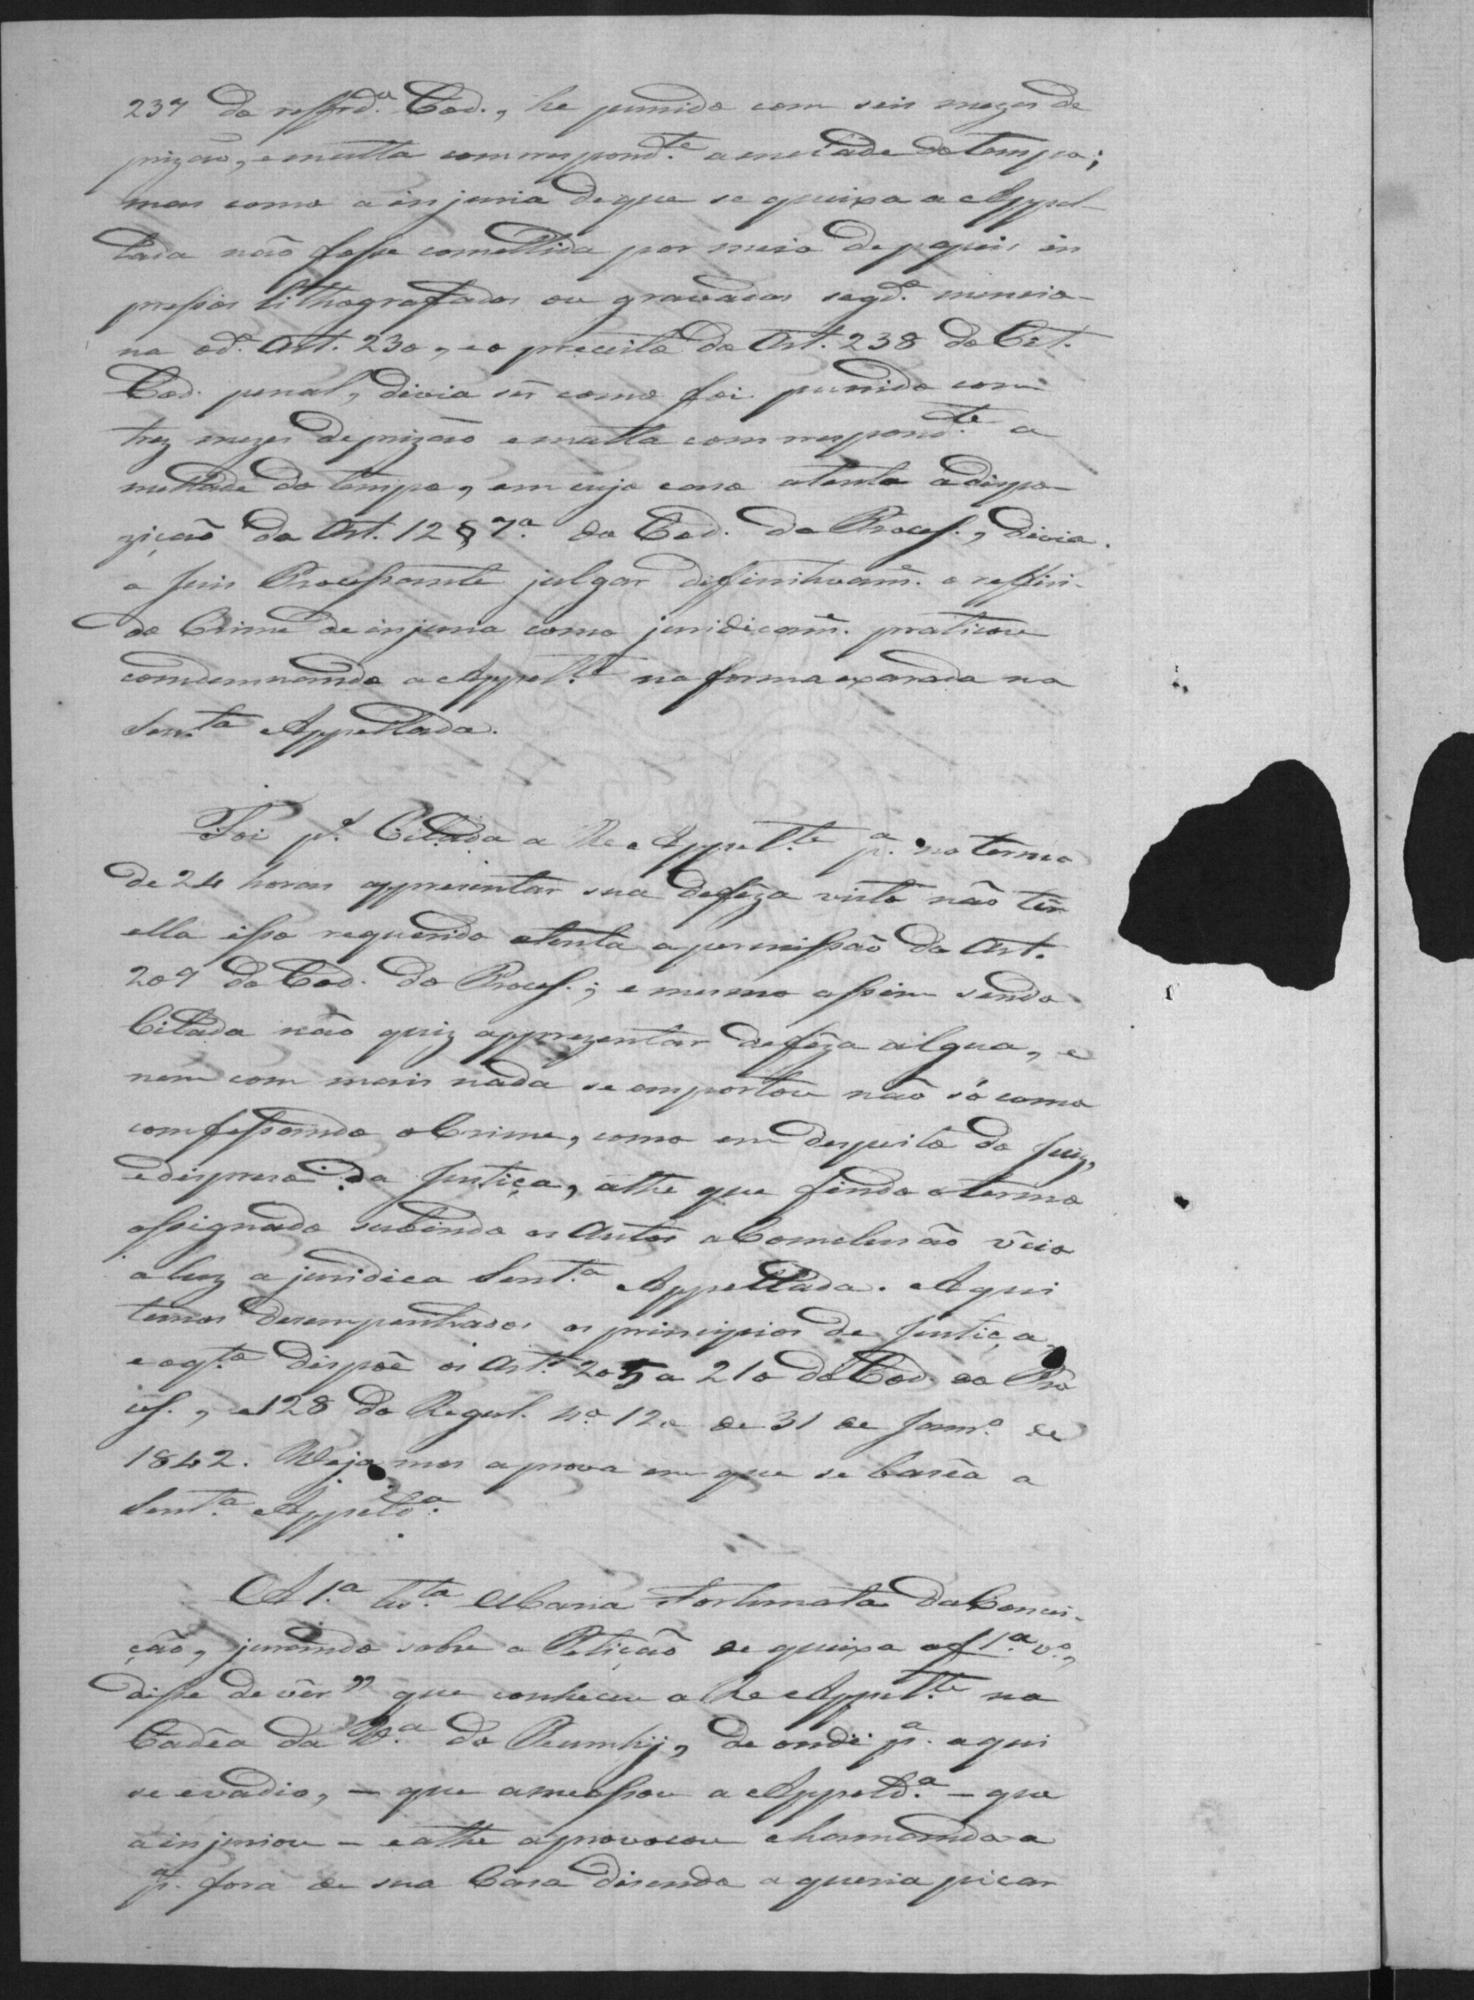 237 do reffrd.º Cod., he punido com seis mezes de
prizão, e multa comrrespond.te a metade do tempo;
mas como a injuria de que se queixa a Appel-
lada não fosse comettida por meio de papeis im
pressos lithografados ou gravados segd.º mencio-
na o d.º Art. 230, e o preceito do Art. 238 do Cit.
Cod. penal, divia sêr como foi punida com
trez mezes de prizão e multa comrrespond.te a
mettade do tempo, em cujo caso atenta a dispo-
zição do Art. 12 § 7.º do Cod. do Process., divia
o Juis Processante julgar difinitivam.e o reffiri-
do Crime de injuria como juridicam.e praticou
comdemnando a Appell.te na forma exarada na
Sent.ª Appellada.
Foi p.s Citada a Re Appell.te p.ª no termo
de 24 horas appresentar sua defêza visto não têr
ella isso requerido atenta a permissão do Art.
207 do Cod. do Process.; e mesmo assim sendo
Citada não quiz apprezentar defêza algua, e
nem com mais nada se emportou não só como
comfessando o Crime, como em despeito do Juiz,
e despreso da Justiça, athe que findo o termo
assignado subindo os Autos a Comclusão vêio
a luz a juridica Sent.ª Appellada. Aqui
temos desempenhados os principios de Justiça,
e o q.to dispõe os Art.s 205 a 210 do Cod. do Pro
cess., e 128 do Regul. N.º 120 de 31 de Janr.º de
1842. Vejamos a prova em que se basêa a
Sent.ª Appeld.ª.
A 1.ª tt.ª Maria Fortunata da Concei-
ção, jurando sobre a Petição de queixa a f 1.ª v.º,
disse de vêr" que conheceu a Re Appell.te na
Cadêa da V.ª do , de onde p.ª aqui
se evadio, - que ameassou a Appeld.ª - que
a injuriou - e athe a provocou chamando-a
p.ª fora de sua Casa disendo a queria picar